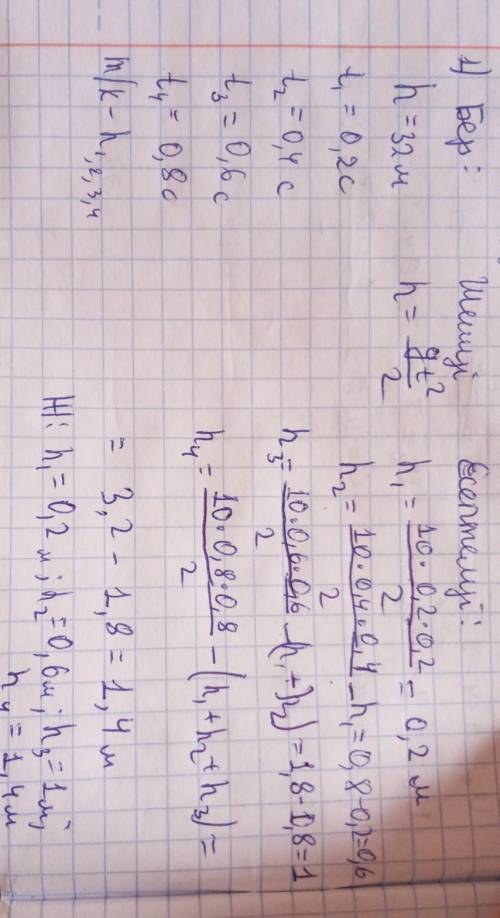 1) Бер:
h = 32м
t₁ = 0,2с
t₂ = 0,4 с
t₃ = 0,6 с
t₄ = 0,8с
т/к - h₁,₂,₃,₄
Шешуі
h = gt²/2
Есептелуі:
h₁ = 10·0,2·0,2/2 = 0,2 м
h₂ = 10·0,4·0,4/2 - h₁ = 0,8-0,2=0,6
h₃ = 10·0,6·0,6/2 - (h₁+h₂) = 1,8-0,8=1
h₄ = 10·0,8·0,8/2 - (h₁+h₂+h₃) =
= 3,2 - 1,8 = 1,4м
Ж: h₁=0,2 м; h₂=0,6м; h₃=1м;
h₄ = 1,4м